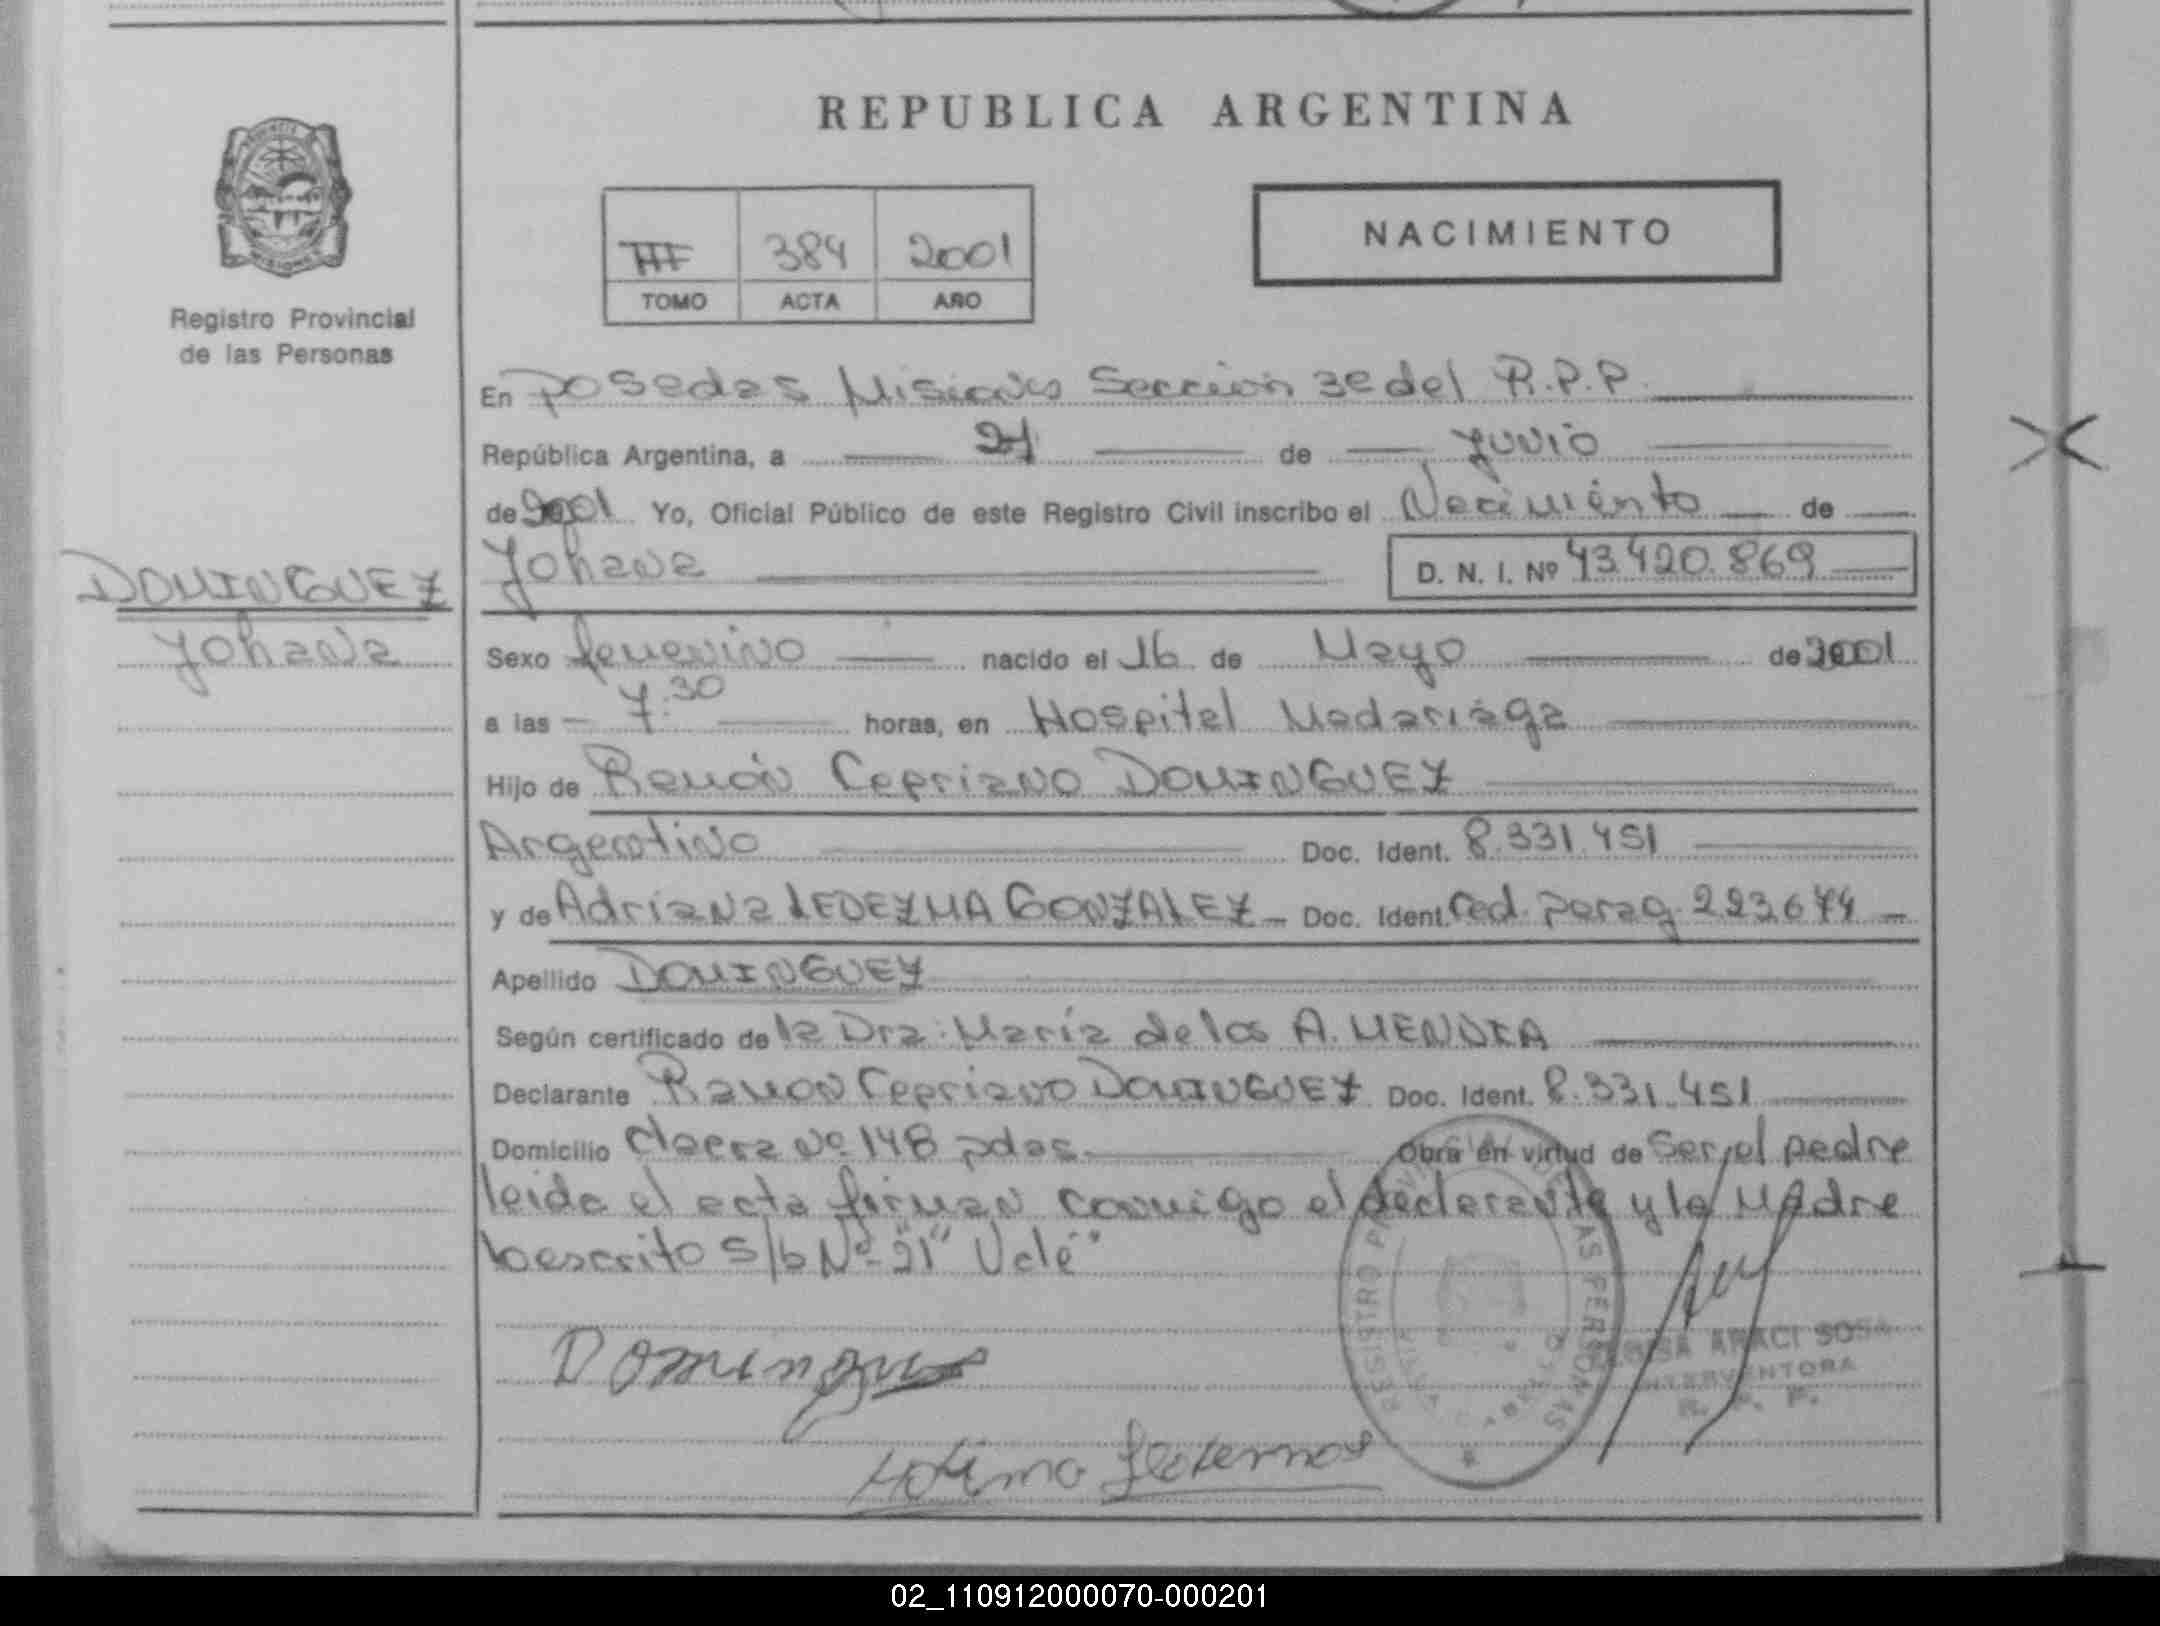 REPUBLICA ARGENTINA
NACIMIENTO
III 384 2001
TOMO ACTA AÑO
Registro Provincial
de las Personas
En Posadas Misiones Sección 3e del R.P.P.
República Argentina, a 27 de Junio
de 2001 Yo, Oficial Público de este Registro Civil inscribo el Nacimiento de
Johana D. N. I. Nº 43.420.869
DOMINGUEZ
Johana
Sexo femenino nacido el 16 de Mayo de 2001
a las 7:30 horas, en Hospital Madariaga
Hijo de Ramón Cepriano DOMINGUEZ
Argentino Doc. Ident. 8.331.451
y de Adriana LEDEZMA GONZALEZ Doc. Ident. Ced. Parag. 223.674
Apellido DOMINGUEZ
Según certificado de la Dra. María de los A. MENDEA
Declarante Ramon Cepriano DOMINGUEZ Doc. Ident. 8.331.451
Domicilio Chacra Nº 148 pdas. Obra en virtud de ser el padre
leida el acta firman conmigo el declarante y la Madre
s/b Nº "21"
REGISTRO PROVINCIAL DE LAS PERSONAS
ARACI SOSA
INTERVENTORA
R. P. P.
02_110912000070-000201